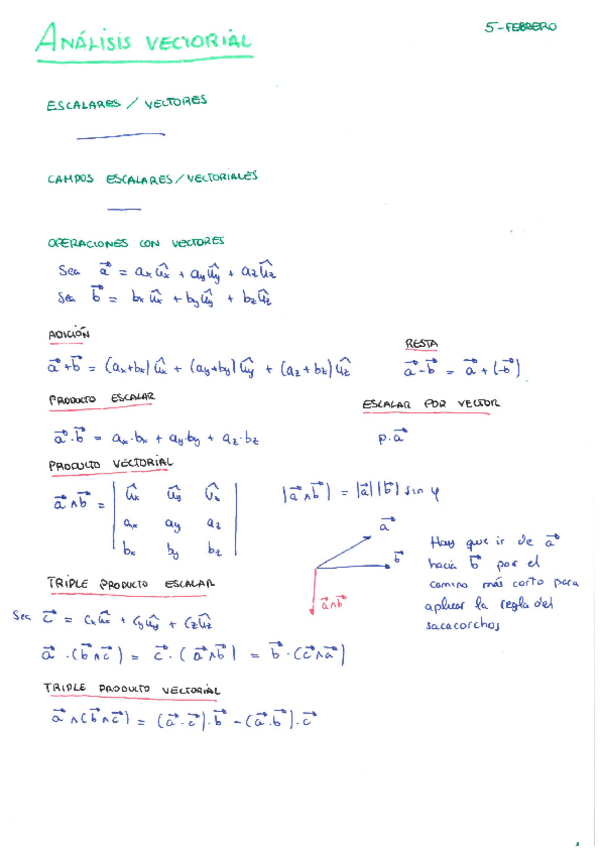 ANÁLISIS VECTORIAL
5-FEBRERO
ESCALARES / VECTORES
CAMPOS ESCALARES/VECTORIALES
OPERACIONES CON VECTORES
Sea a⃗ = ax ûx + ay ûy + az ûz
Sea b⃗ = bx ûx + by ûy + bz ûz
ADICIÓN
a⃗+b⃗ = (ax+bx) ûx + (ay+by) ûy + (az+bz) ûz
RESTA
a⃗-b⃗ = a⃗+(-b⃗)
PRODUCTO ESCALAR
a⃗·b⃗ = ax·bx + ay·by + az·bz
ESCALAR POR VECTOR
p·a⃗
PRODUCTO VECTORIAL
a⃗∧b⃗ =
ûx ûy ûz
ax ay az
bx by bz
|a⃗∧b⃗| = |a⃗||b⃗| sin φ
a⃗
b⃗
a⃗∧b⃗
Hay que ir de a⃗
hacia b⃗ por el
camino más corto para
aplicar la regla del
sacacorchos
TRIPLE PRODUCTO ESCALAR
Sea c⃗ = cx ûx + cy ûy + cz ûz
a⃗·(b⃗∧c⃗) = c⃗·(a⃗∧b⃗) = b⃗·(c⃗∧a⃗)
TRIPLE PRODUCTO VECTORIAL
a⃗∧(b⃗∧c⃗) = (a⃗·c⃗)·b⃗ - (a⃗·b⃗)·c⃗